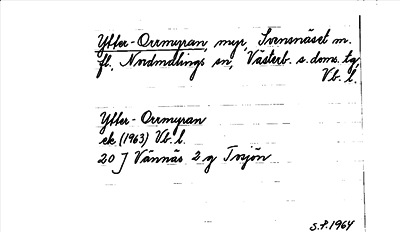 Ytter-Orrmyran, myr, Svensnäset m.
fl., Nordmalings sn, Västerb. s. doms. tg,
Vb. l.
Ytter-Orrmyran
ek. (1963) Vb. l.
20 J Vännäs 2 g Tvsjön
S.P. 1964